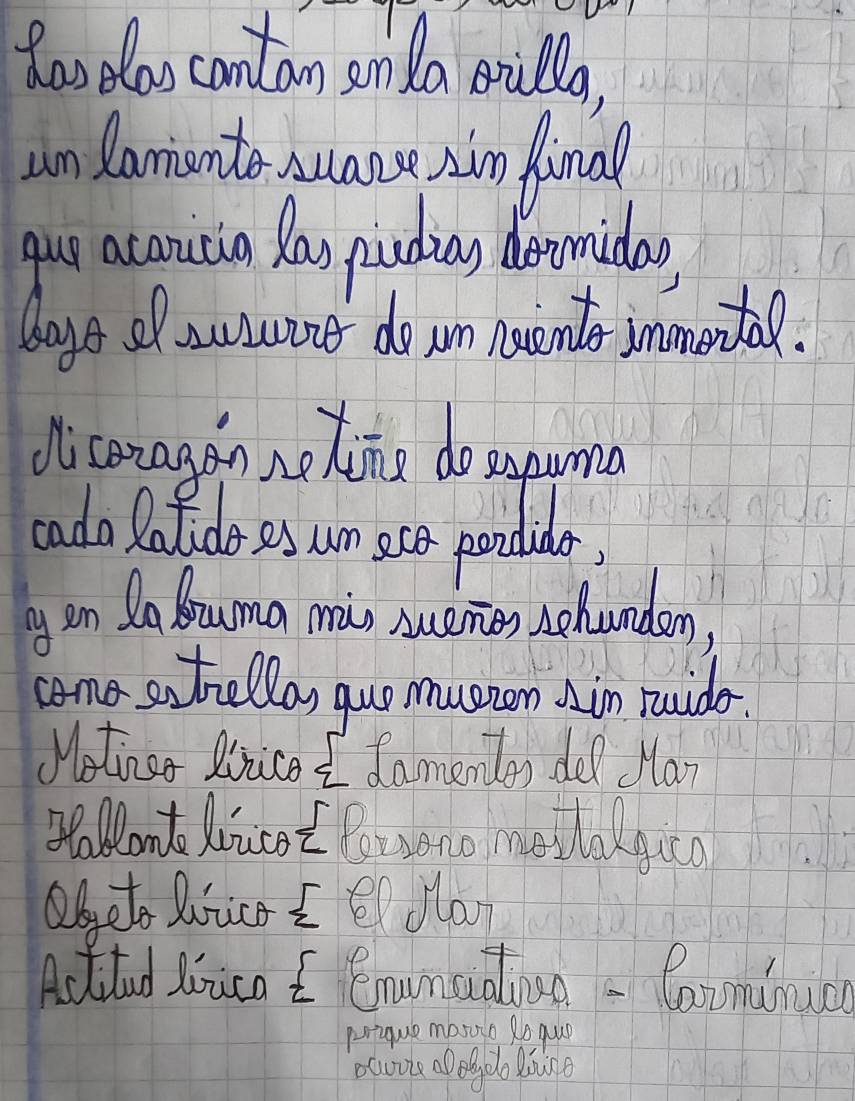 Las olas cantan en la orilla,
un lamento suave sin final
que acaricia las piedras dormidas,
bajo el susurro de un viento inmortal.
Mi corazón se tiñe de espuma
cada latido es un eco perdido,
y en la bruma mis sueños se hunden,
como estrellas que mueren sin ruido.
Motivo lírico { Lamentos del Mar
Hablante lírico { Persona nostalgica
Objeto lírico { El Mar
Actitud lírica { Enunciativa - Carmínica
porque narra lo que
ocurre al objeto lírico